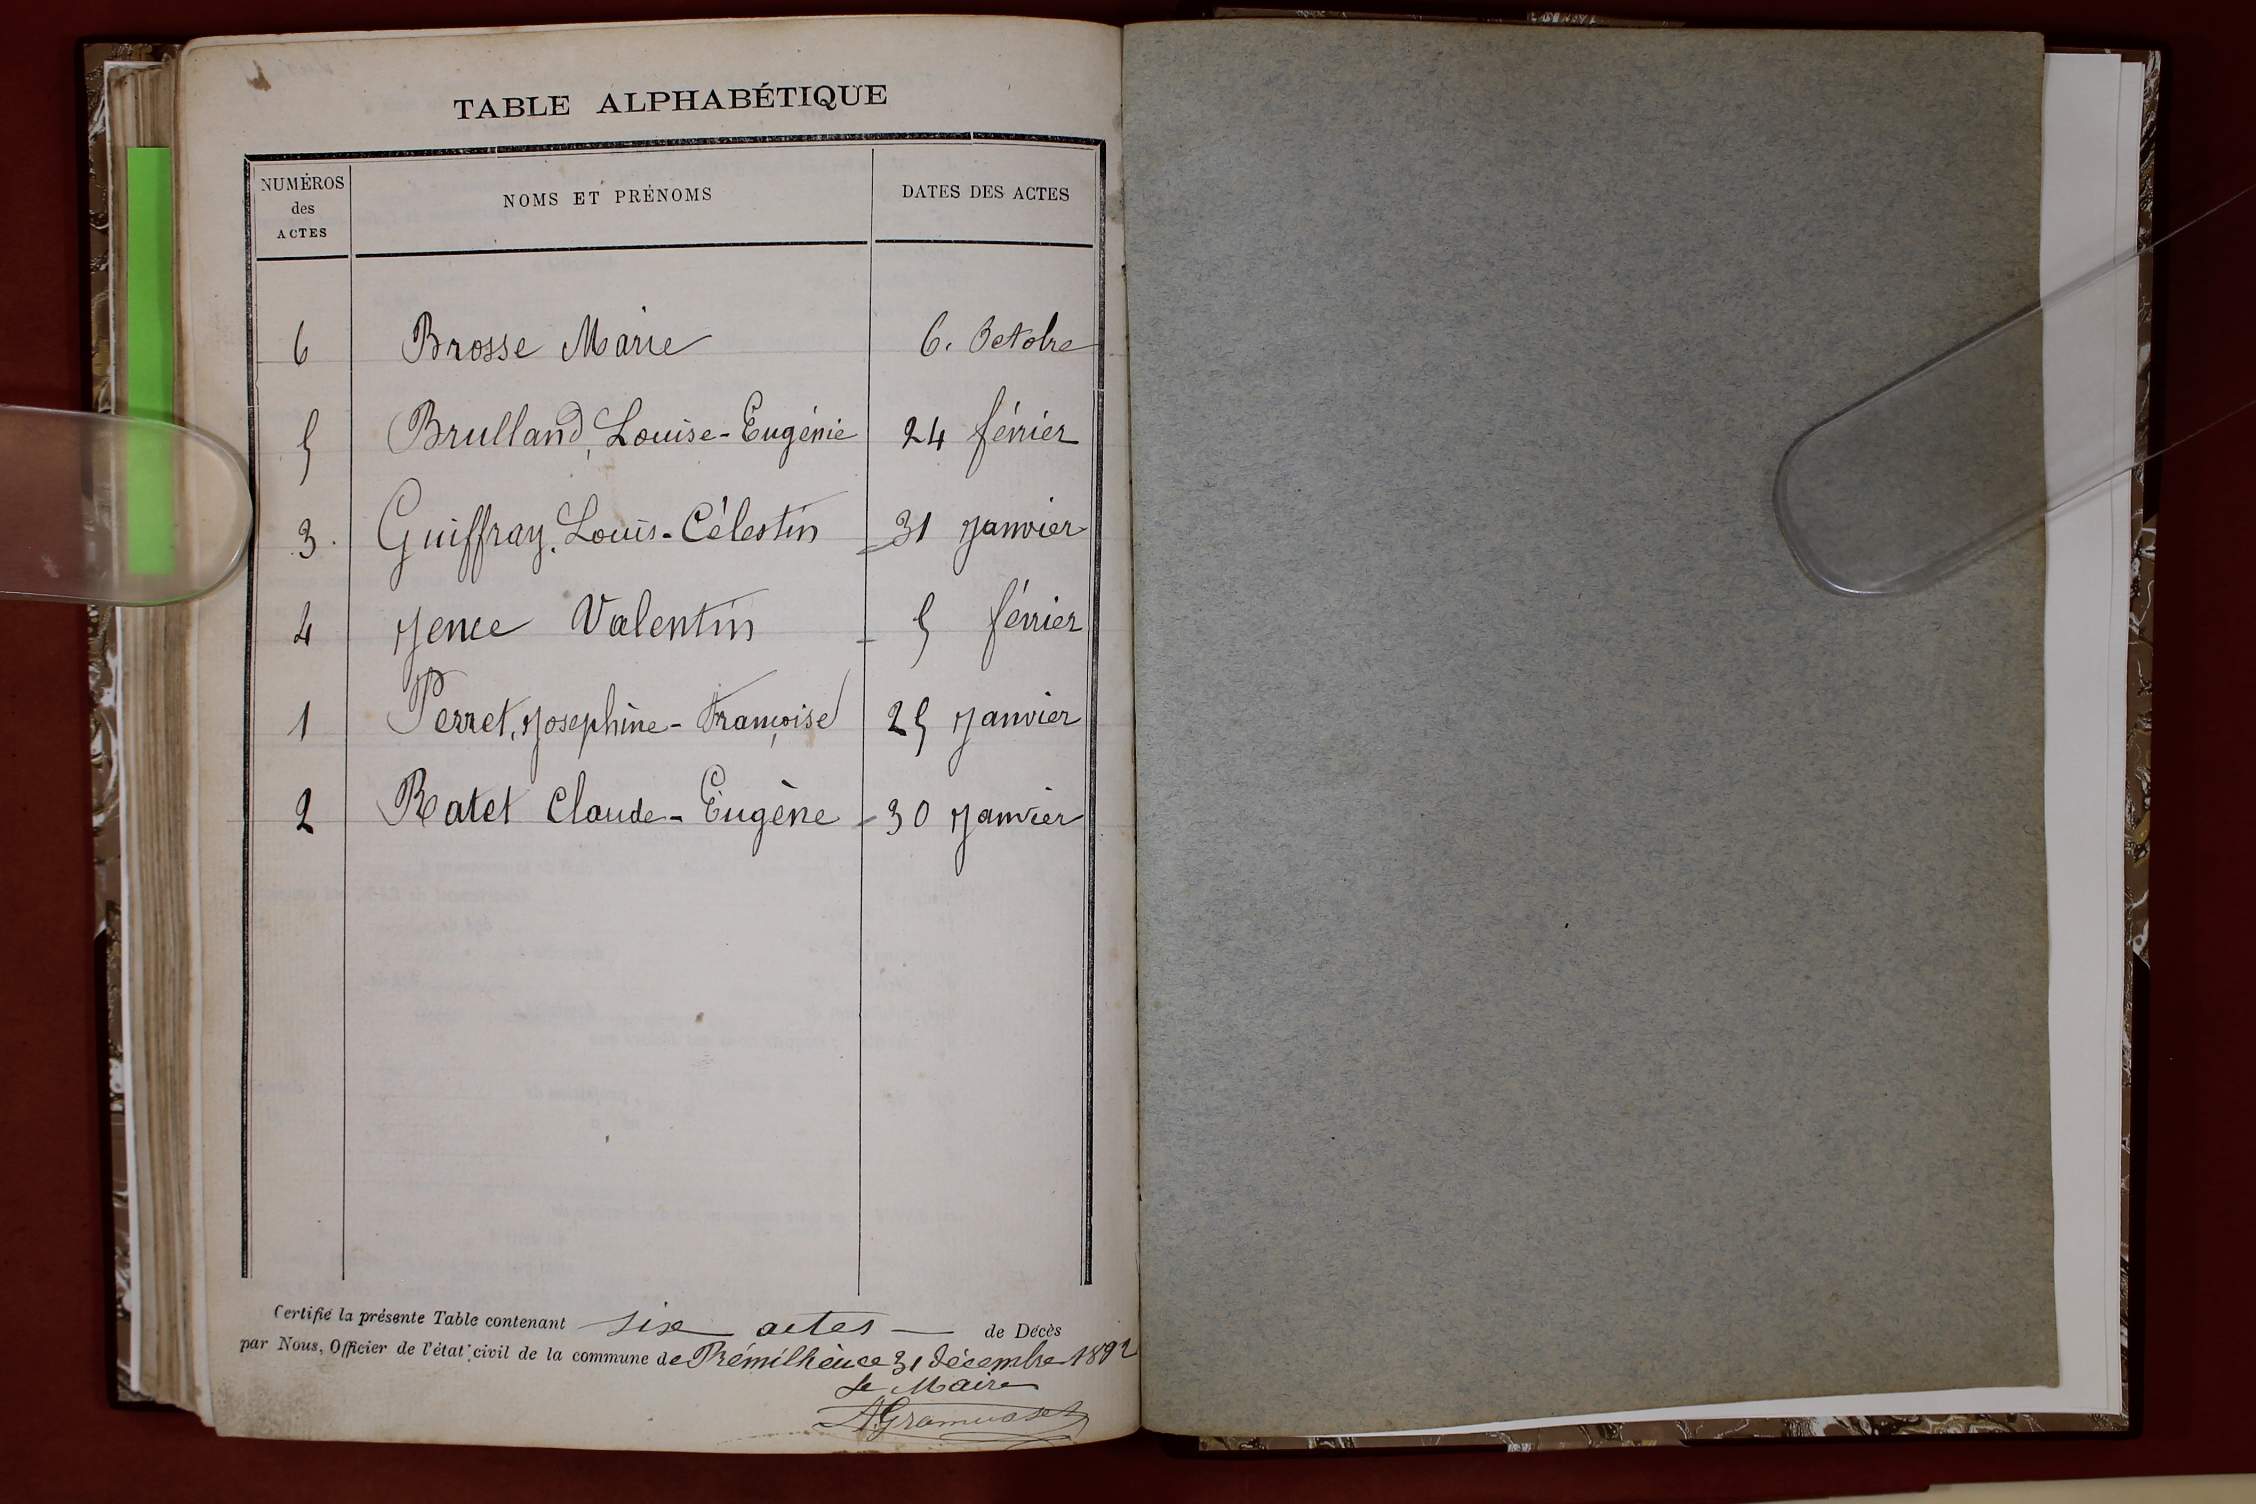 TABLE ALPHABÉTIQUE
NUMÉROS des ACTES NOMS ET PRÉNOMS DATES DES ACTES
6 Brosse Marie 6. Octobre
5 Brulland, Louise-Eugénie 24 février
3. Guiffray, Louis-Célestin 31 Janvier
4 Jence Valentin 5 février
1 Perret, Josephine-Françoise 25 Janvier
2 Ratet Claude-Eugène 30 Janvier
Certifié la présente Table contenant six actes de Décès
par Nous, Officier de l'état civil de la commune de 31 décembre 1892
Le Maire